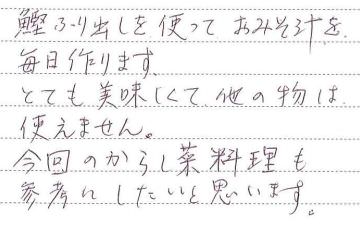 鰹ふり出しを使っておみそ汁を
毎日作ります。
とても美味しくて、他の物は
使えません。
今回のからし菜料理も
参考にしたいと思います。